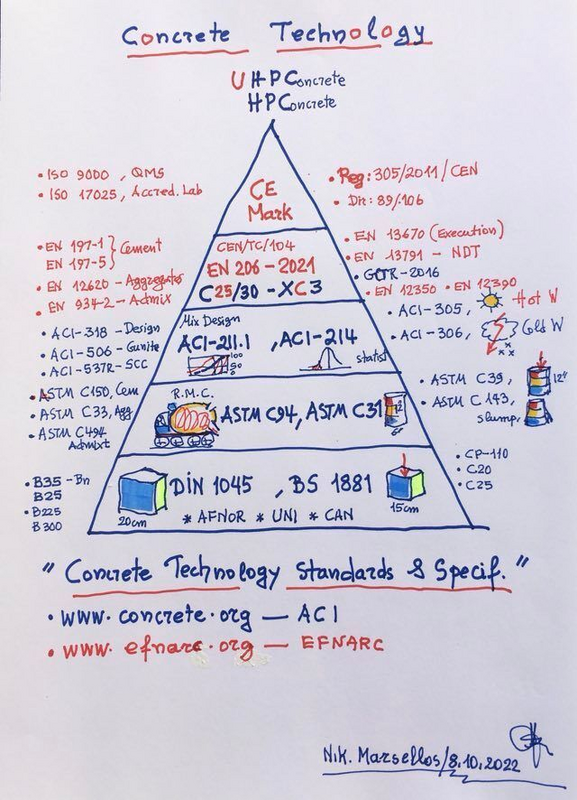 Concrete Technology
UHPConcrete
HPConcrete
CE
Mark
• ISO 9000, QMS
• ISO 17025, Accred. Lab
• Reg: 305/2011/CEN
• Dir: 89/106
CEN/TC/104
EN 206 - 2021
C25/30 - XC3
• EN 197-1 } Cement
EN 197-5
• EN 12620 - Aggregates
• EN 934-2 - Admix
• EN 13670 (Execution)
• EN 13791 - NDT
• GCTR-2016
• EN 12350 • EN 12390
Mix Design
ACI-211.1 , ACI-214
100
50
0
statist
• ACI-318 - Design
• ACI-506 - Gunite
• ACI-537R - SCC
• ACI-305, Hot W
• ACI-306, Cold W
R.M.C.
ASTM C94, ASTM C31
12"
6"
• ASTM C150, Cem
• ASTM C33, Agg
• ASTM C494
Admixt
• ASTM C39, 12"
• ASTM C143,
slump.
DIN 1045 , BS 1881
20cm
15cm
* AFNOR * UNI * CAN
• B35 - Bn
B25
• B225
B300
• CP-110
• C20
• C25
"Concrete Technology Standards & Specif."
• www.concrete.org — ACI
• www.efnarc.org — EFNARC
Nik. Marsellos/8.10.2022